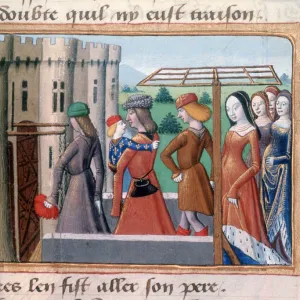 doubte quil ny eust traison.
res len fist aller son pere.